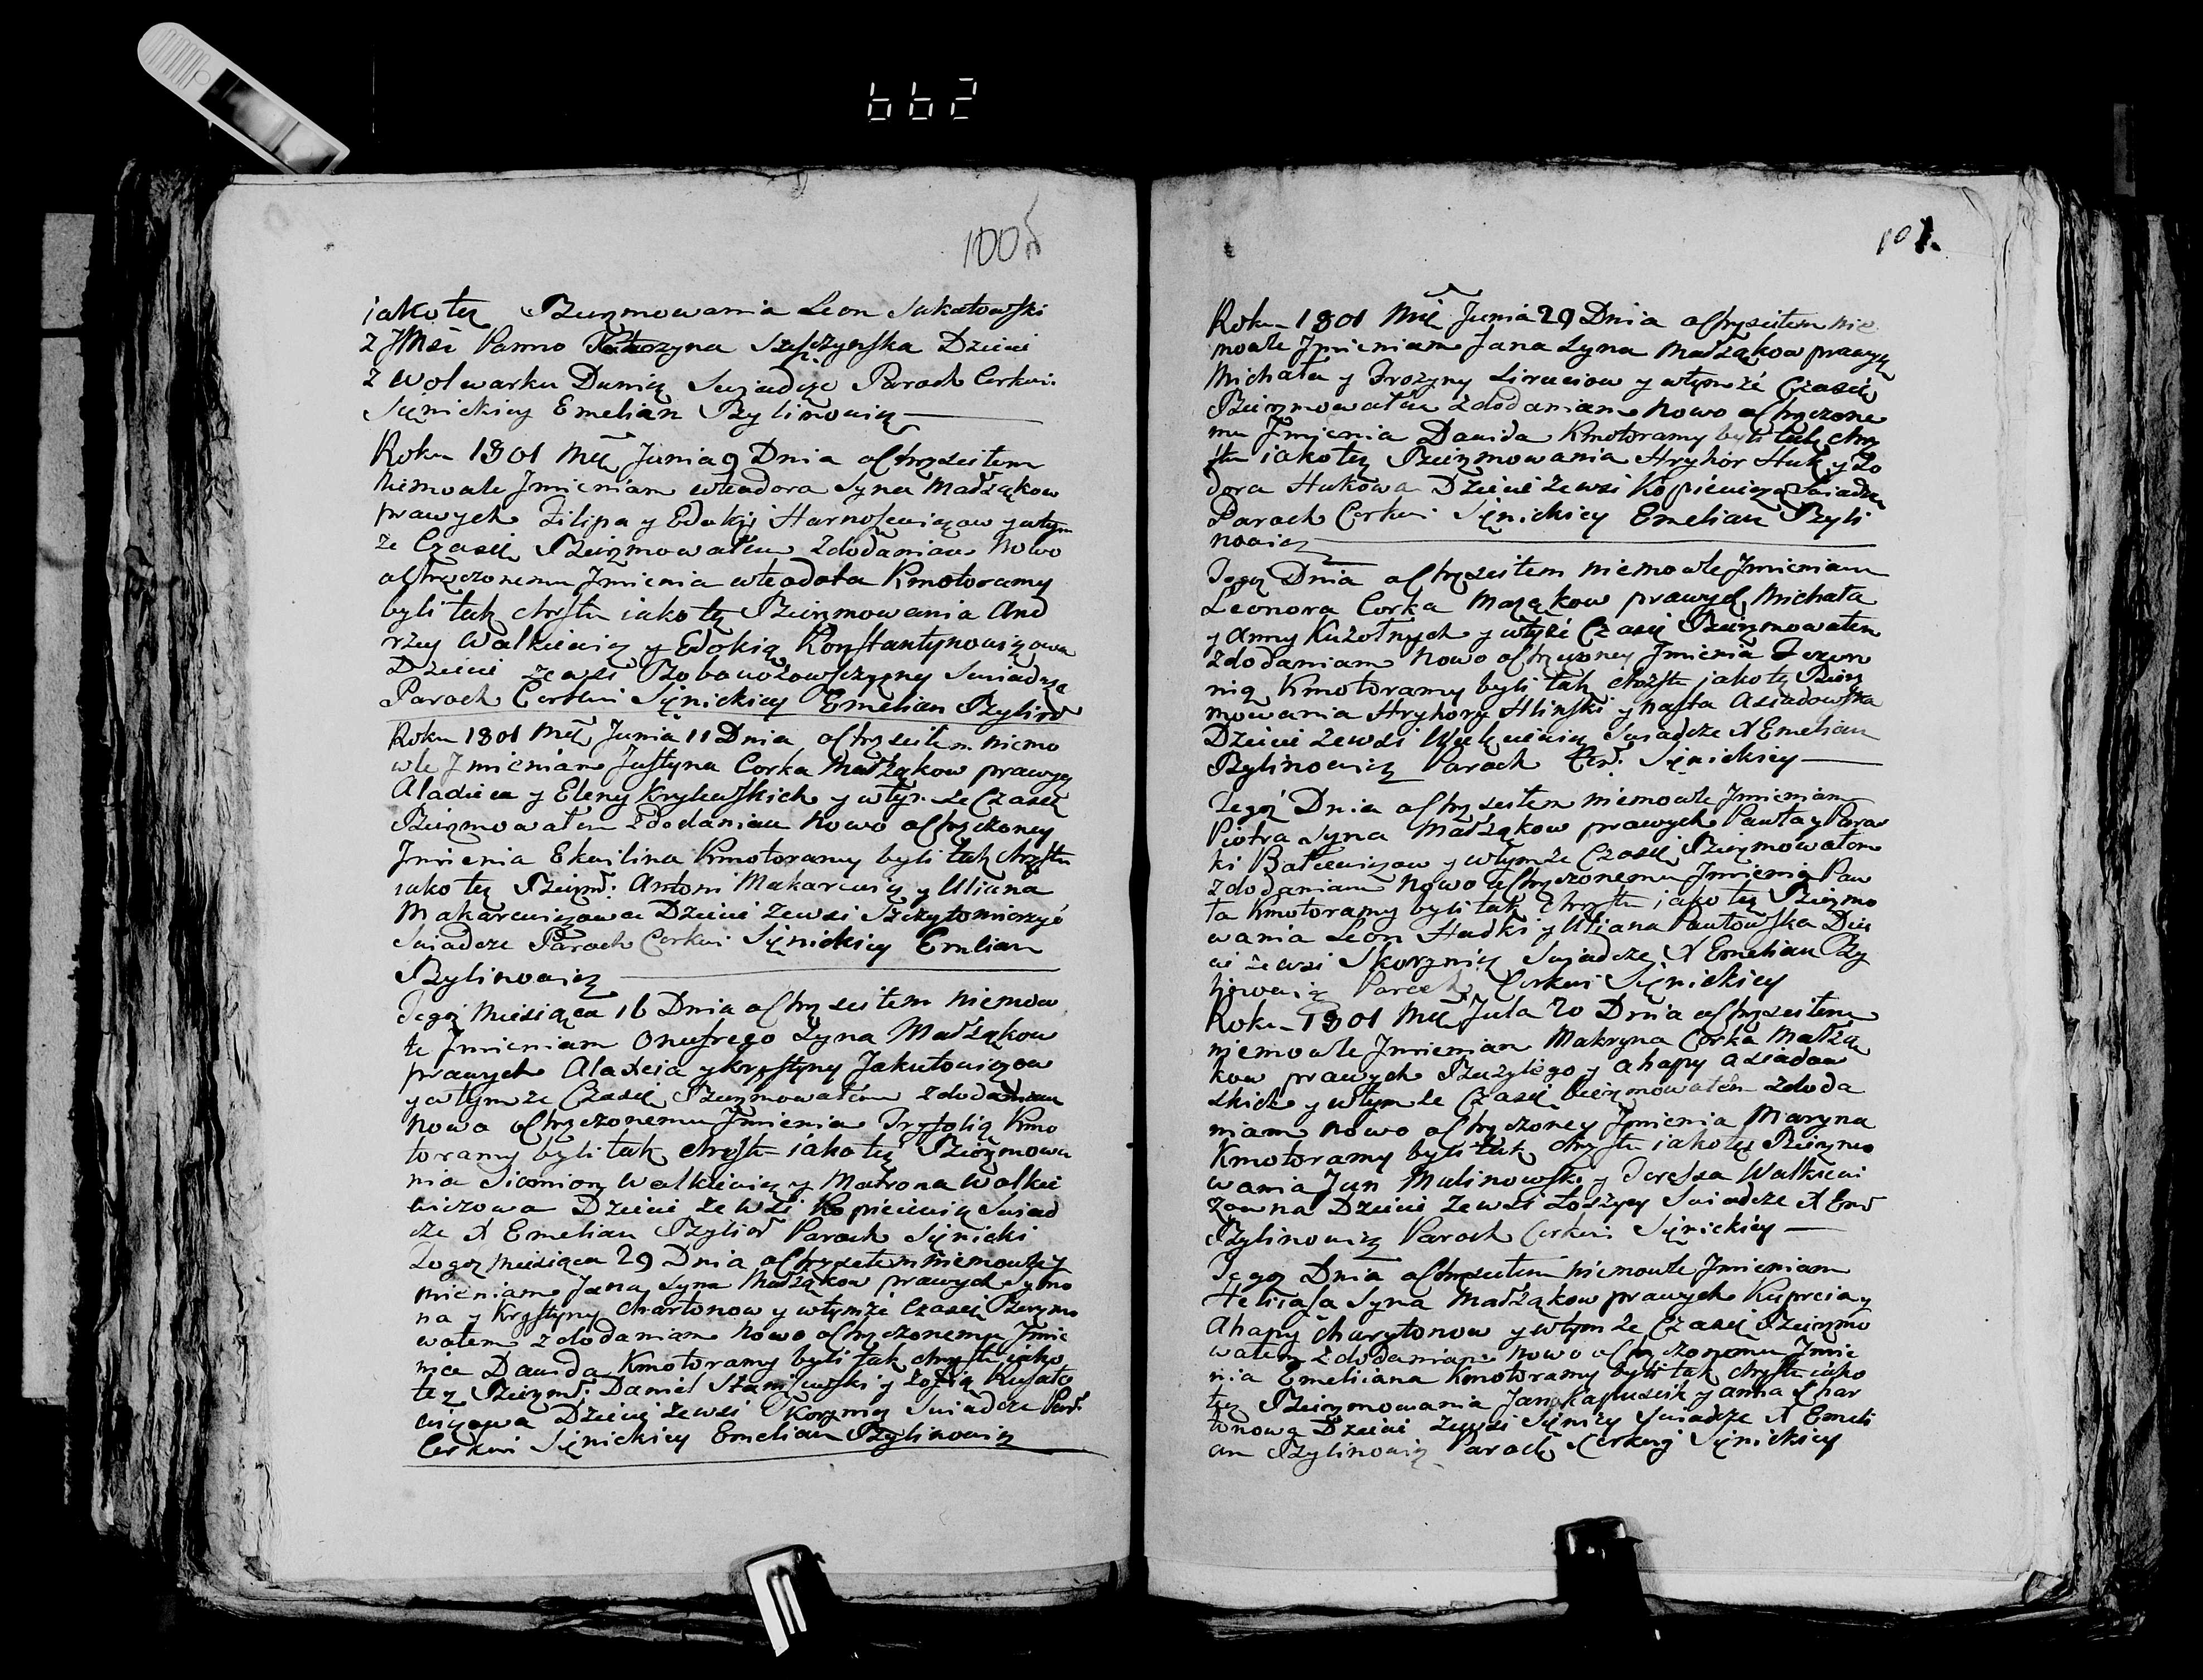 662
100 об
iakotez Bierzmowania Leon Sukatowski
z JMsc Panno Katarzyna Dzieie
z wolwarku Dunicz Swiadcze Paroch Cerkwi
Sięnickiey Emelian Bylinowicz
Roku 1801 Mcę Junia 9 Dnia ochrzsciłem
Niemowle Jmieniam wteadora Syna Małżąkow
prawych Filipa y Edokij Harnosewiczow y wtym
że Czasię Bierzmowałem zdodaniam Nowo
ochrzczonemu Jmienia wteodota Kmotoramy
byli tak chrstu iako tęz Bierzmowania And
rzey Walkiewicz y Edokią Konstantynowiczowa
Dzieiei ze wsi Swiadczę
Paroch Cerkwi Sięnickiey Emelian Bylinow
Roku 1801 Mcę Junia 11 Dnia ochrzsciłem niemo
wle Jmieniam Justyna Corka Małżąkow prawych
Aladieia y Eleny Krykowskich y wtym że Czasię
Bierzmowałem zdodaniam Nowo ochrzczoney
Jmienia Ekwilina Kmotoramy byli tak chrstu
iako tęz Bierzm: Antoni Makarewicz y Uliana
Makarewiczowa Dzieiei ze wsi Szczytomierzyc
Swiadcze Paroch Cerkwi Sięnickiey Emlian
Bylinowicz
Tegoz Miesiąca 16 Dnia ochrzsciłem niemow
le Jmieniam Onufrego Syna Małżąkow
prawych Alaxeia y krystyny Jakutowiczow
y wtym że Czasię Bierzmowałem zdodaniam
Nowo ochrzczonemu Jmienia Kmo
toramy byli tak chrstu iako tęz Bierzmowa
nia Siemion Walkiewicz y Matrona Walkie
wiczowa Dzieiei ze wsi Kopieiewicz Swiad
cze X Emelian Bylinow Paroch Sięnicki
Tegoz Miesiąca 29 Dnia ochrzsciłem niemowle J
mieniam Jana Syna Małżąkow prawych Symo
na y Krystyny Charłonow y wtymże Czasię Bierzmo
wałem zdodaniam Nowo ochrzczonemu Jmie
nia Dawida Kmotoramy byli tak chrstu iako
tęz Bierzm: Daniel y Zofią
Dzieiei ze wsi Skorynicz Swiadcze Par:
Cerkwi Sięnickiey Emelian Bylinowicz
101.
Roku 1801 Mcę Junia 29 Dnia ochrzsciłem nie
mowle Jmieniam Jana Syna Małżąkow prawych
Michała y Frozyny y wtymże Czasię
Bierzmowałem zdodaniam nowo ochrzczone
mu Jmienia Dawida Kmotoramy byli tak chrz
stu iakotęz Bierzmowania Hryhor Huk y Fo
dora Hukowa Dzieiei ze wsi Kopieiewicz Swiadcze
Paroch Cerkwi Sięnickiey Emelian Byli
nowicz
Tegoz Dnia ochrzsciłem niemowle Jmieniam
Leonora Corka Małżąkow prawych Michała
y Anny Kuzotnych y wtymże Czasię Bierzmowałem
zdodaniam nowo ochrzczoney Jmienia
Kmotoramy byli tak chrzstu iako tęz Bierz
mowania Hryhory Hlinski y Nasta Asiadowska
Dzieiei ze wsi Swiadcze X Emelian
Bylinowicz Paroch Cer: Sięnickiey
Tegoz Dnia ochrzsciłem niemowle Jmieniam
Piotra Syna Małżąkow prawych Pawła y Paras
ki y wtymże Czasię Bierzmowałem
zdodaniam nowo ochrzczonemu Jmienia Paw
ła Kmotoramy byli tak chrzstu iako tęz Bierzmo
wania Leon Hudki y Uliana Pawłowska Dzie
iei ze wsi Skorynicz Swiadcze X Emelian By
linowicz Paroch Cerkwi Sięnickiey
Roku 1801 Mcę Jula 20 Dnia ochrzsciłem
niemowle Jmieniam Makryna Corka Małżą
kow prawych Bazylego y Ahapy Asiadow
skich y wtymże Czasię bierzmowałem zdoda
niam nowo ochrzczoney Jmienia Maryna
Kmotoramy byli tak chrzstu iako tęz Bierzmo
wania Jan Malinowski y Teressa Walkiewi
zowna Dzieiei ze wsi Łoszycy Swiadcze X Emel
Bylinowicz Paroch Cerkwi Sięnickiey
Tegoz Dnia ochrzsciłem niemowle Jmieniam
Heliasa Syna Małżąkow prawych Kuprcia y
Ahapy Charytonow y wtym że Czasię Bierzmo
wałem zdodaniam nowo ochrzczonemu Jmie
nia Emeliana Kmotoramy byli tak chrzstu iako
tęz Bierzmowania Jan Kapuscik y Anna Char
tonowa Dzieiei ze wsi Sięnicy Swiadcze X Emeli
an Bylinowicz Paroch Cerkwi Sięnickiey